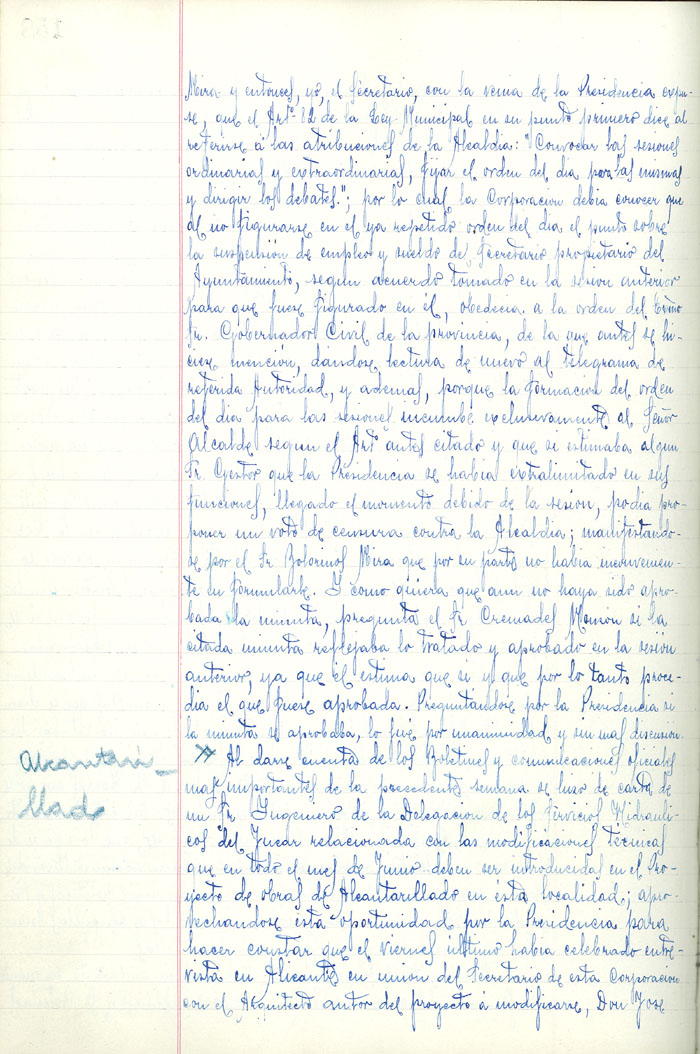 Mira y entonces, yo, el Secretario, con la venia de la Presidencia expu-
se, que el Artº 82 de la Ley Municipal en su punto primero dice al
referirse á las atribuciones de la Alcaldia: "Convocar las sesiones
ordinarias y extraordinarias, fijar el orden del dia para las mismas
y dirigir los debates."; por lo cual la Corporacion debia conocer que
al no figurarse en el ya repetido orden del dia el punto sobre
la suspensión de empleo y sueldo de Secretario propietario del
Ayuntamiento, segun acuerdo tomado en la sesion anterior
para que fuese figurado en el, obedecia a la orden del Exmo
Sr. Gobernador Civil de la provincia, de la que antes se hi-
ciese mención, dándose lectura de nuevo al telegrama de
referida Autoridad, y ademas, porque la formacion del orden
del dia para las sesiones incumbe exclusivamente al Señor
Alcalde segun el Artº antes citado y que si estimaba algun
Sr. Gestor que la Presidencia se habia extralimitado en sus
funciones, llegado el momento debido de la sesion, podia pro-
poner un voto de censura contra la Alcaldia; manifestando-
se por el Sr. Bolorinos Mira que por su parte no habia inconvenien-
te en formularle. I como quiera que aun no haya sido apro-
bada la minuta, pregunta el Sr Cremades Monzon si la
citada minuta reflejaba lo tratado y aprobado en la sesión
anterior, ya que el estima que si y que por lo tanto proce-
dia el que fuese aprobada. Preguntándose por la Presidencia si
la minuta se aprobaba, lo fue por unanimidad y sin mas discusion.
Alcantari-
llado
Al darse cuenta de los Boletines y comunicaciones oficiales
mas importantes de la precedente semana se hizo de carta de
un Sr. Ingeniero de la Delegacion de los Servicios Hidrauli-
cos del Jucar relacionada con las modificaciones tecnicas
que en todo el mes de Junio deben ser introducidas en el Pro-
yecto de obras de Alcantarillado en esta localidad; apro-
vechandose esta oportunidad por la Presidencia para
hacer constar que el viernes ultimo habia celebrado entre-
vista en Alicante en union del Secretario de esta Corporacion
con el Arquitecto autor del proyecto á modificarse, Don Jose